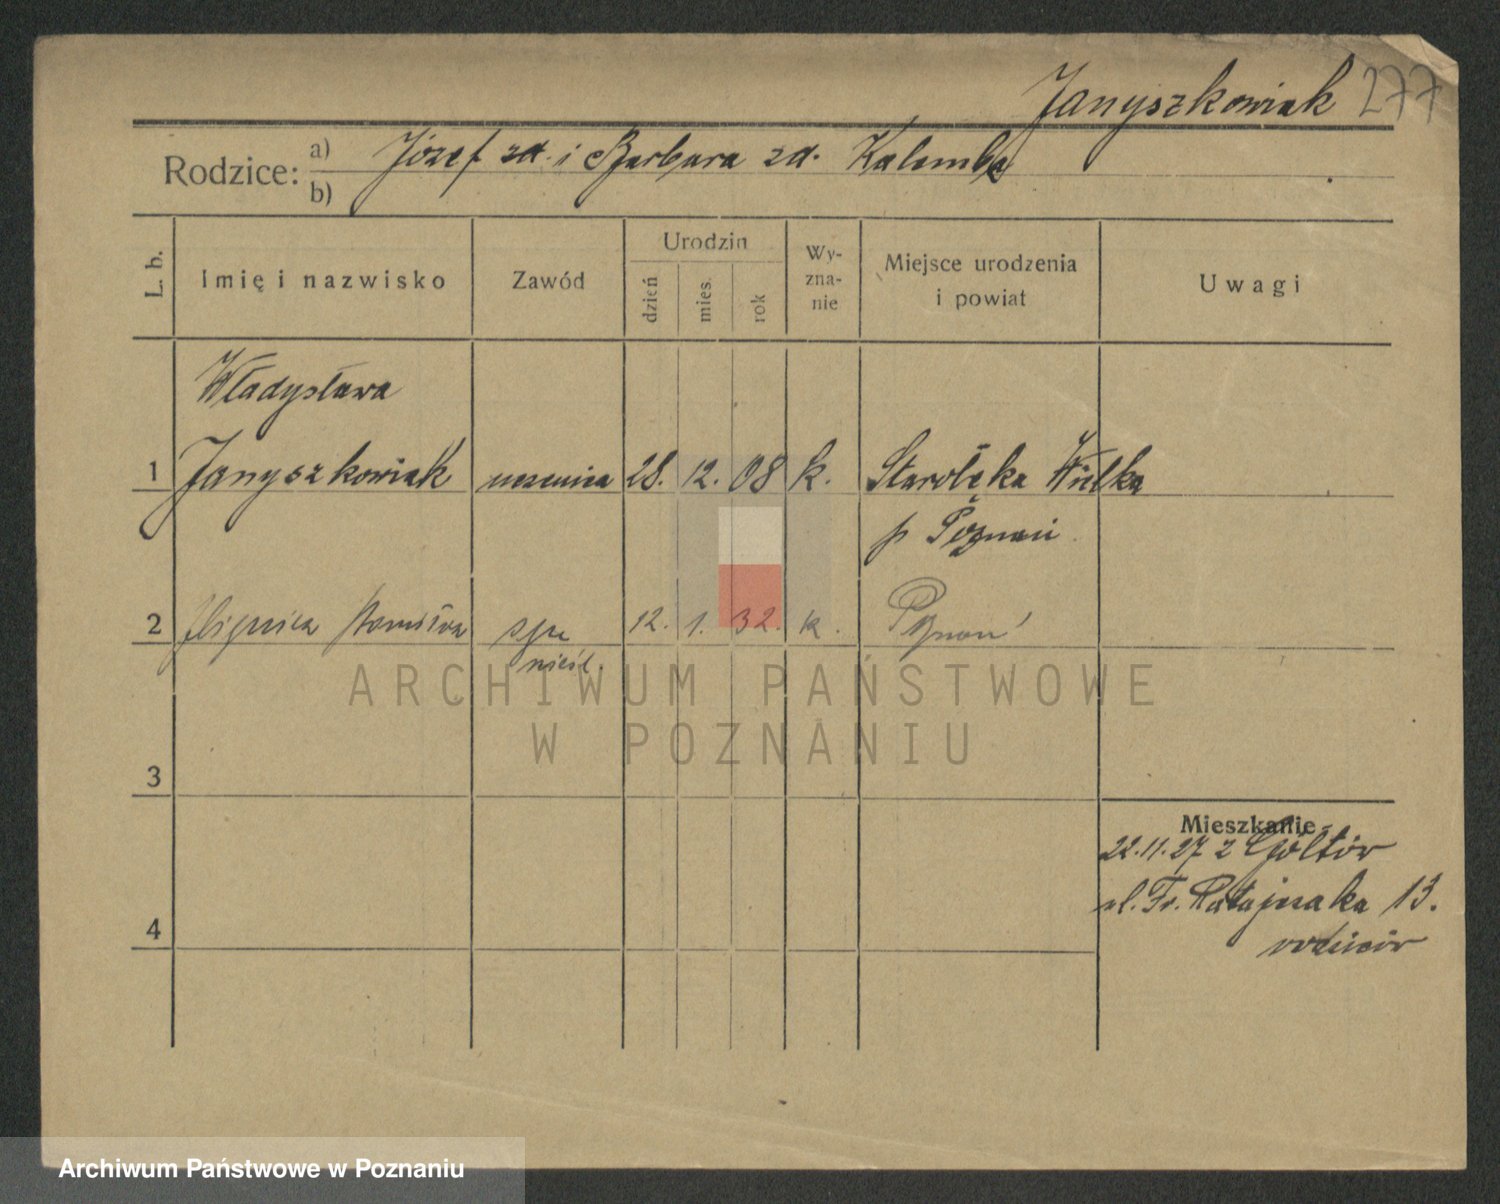 Janyszkowiak 277
Rodzice: a) Józef zd. i Barbara zd. Kalemba
b)
L. b.
Imię i nazwisko
Zawód
Urodzin
dzień
mies.
rok
Wy-
zna-
nie
Miejsce urodzenia
i powiat
Uwagi
Władysława
1 Janyszkowiak uczenica 28. 12. 08 k. Starołęka Wielka
p Poznań
2 12. 1. 32. k. Poznań
3
4
Mieszkanie
22.11.27 z
ul. Fr. Ratajczaka 13.
rodziców
ARCHIWUM PAŃSTWOWE
W POZNANIU
Archiwum Państwowe w Poznaniu